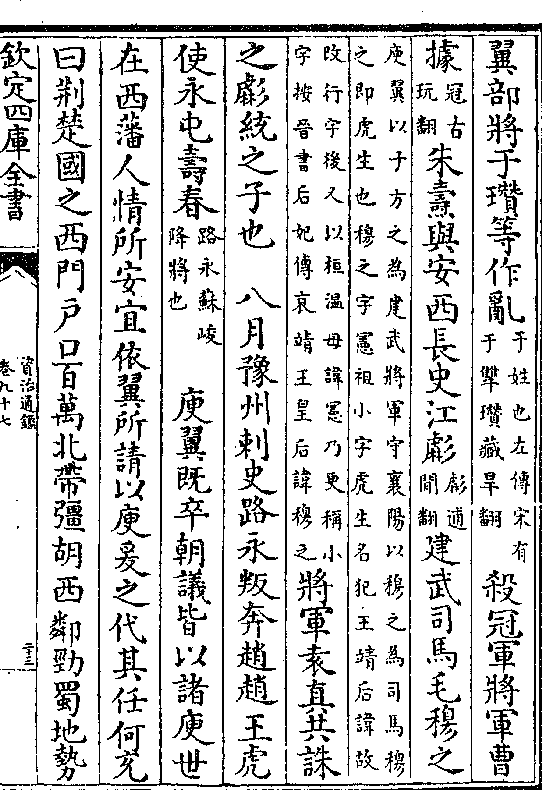 翼部將于瓚等作亂干姓也左傳宋有于犨瓚藏旱翻殺冠軍將軍曹
據冠古玩翻朱燾與安西長史江虨虨逋閒翻建武司馬毛穆之
庾翼以子方之為建武將軍守襄陽以穆之為司馬穆
之即虎生也穆之字憲祖小字虎生名犯王靖后諱故
改行字後又以桓温母諱憲乃更稱小
字按晉書后妃傳哀靖王皇后諱穆之將軍袁真共誅
之虨統之子也　八月豫州刺史路永叛奔趙趙王虎
使永屯壽春路永蘇峻降將也　庾翼既卒朝議皆以諸庾世
在西藩人情所安宜依翼所請以庾爰之代其任何充
曰荆楚國之西門户口百萬北帶彊胡西鄰勁蜀地勢
欽定四庫全書
資治通鑑
卷九十七
二十三